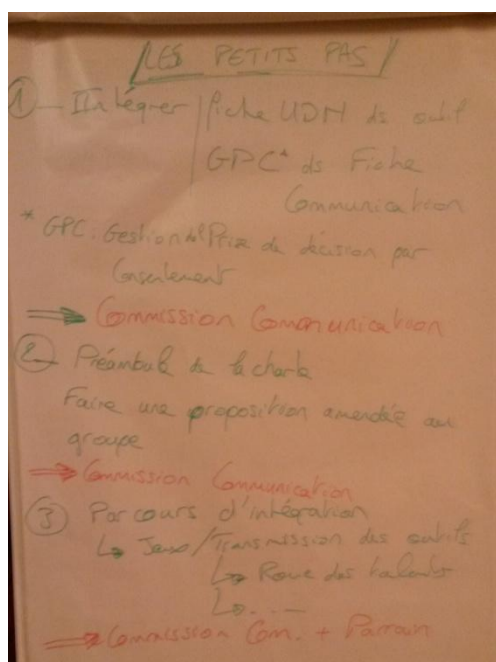 LES PETITS PAS
① – Intégrer | fiche UDN ds outil
GPC* ds Fiche
Communication
* GPC. Gestion de Prise de décision par
Consentement
⇒ Commission Communication
② Préambule de la charte
Faire une proposition amendée au
groupe
⇒ Commission Communication
③ Parcours d'intégration
↳ Jeux/Transmission des outils
↳ Roue des talents
↳ ...
⇒ Commission Com. + Parrain